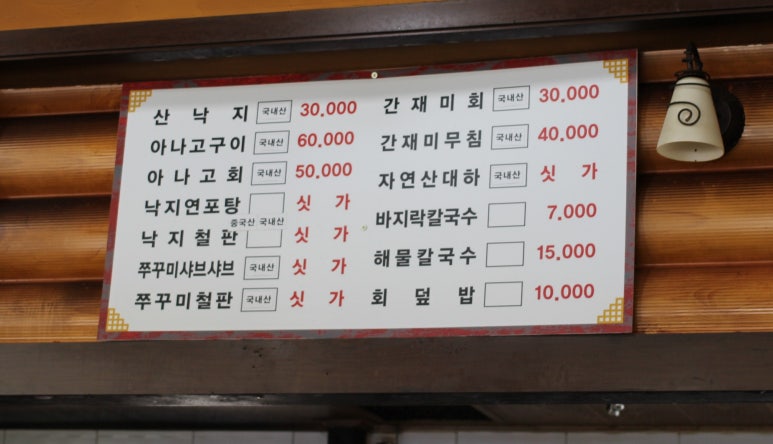 산 낙 지 국내산 30.000
아나고구이 국내산 60.000
아 나 고 회 국내산 50.000
낙지연포탕 싯 가
중국산 국내산
낙 지 철 판 싯 가
쭈꾸미샤브샤브 국내산 싯 가
쭈꾸미철판 국내산 싯 가
간 재 미 회 국내산 30.000
간재미무침 국내산 40.000
자연산대하 국내산 싯 가
바지락칼국수 7.000
해물칼국수 15.000
회 덮 밥 10.000